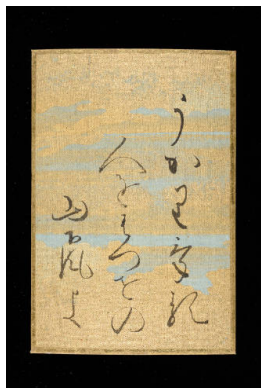 うかりける
人をはつせの
山おろしよ